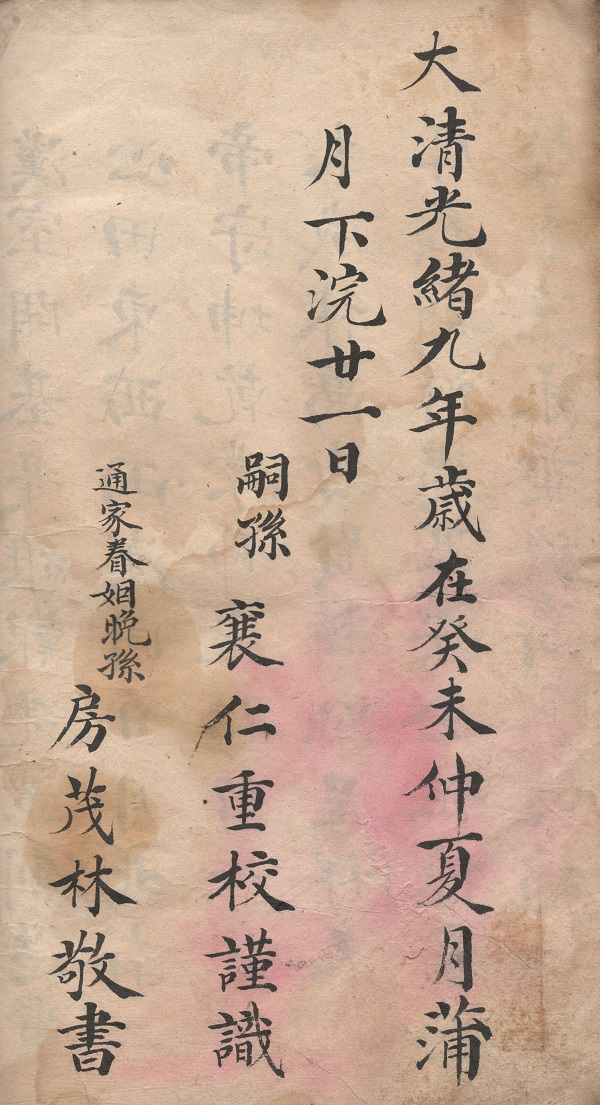 大清光緒九年歲在癸未仲夏月蒲
月下浣廿一日
嗣孫 襄仁重校謹識
通家眷姻晚孫 房茂林敬書